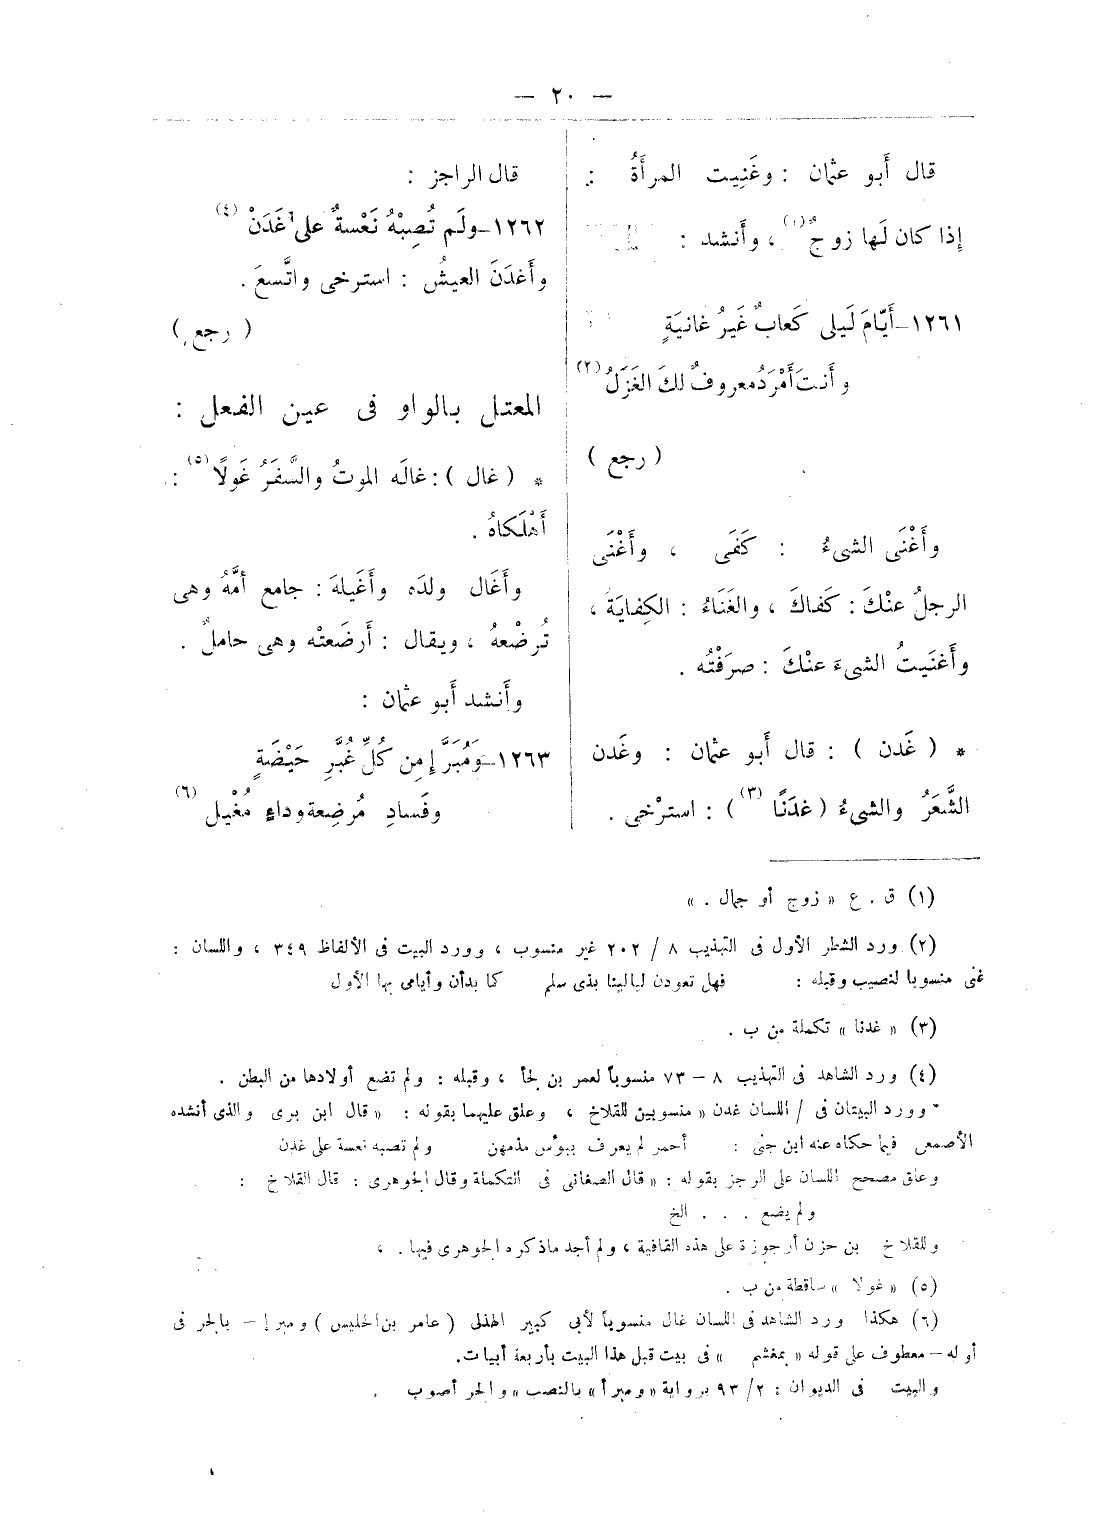 — ٢٠ —
قال أَبو عثمان : وغَنِيت المرأَةُ :
إذا كان لَها زوجٌ (١) ، وأَنشد :
١٢٦١–أَيّامَ لَيلى كَعابٌ غَيرُ غانيَةٍ
وأَنتَ أَمْرَدُ معروفٌ لكَ الغَزَلُ (٢)
( رجع )
وأَغْنَى الشىءُ : كَفَى ، وأَغْنَى
الرجلُ عنْكَ : كَفاكَ ، والغَنَاءُ : الكِفايَة ،
وأَغنَيتُ الشىءَ عنْكَ : صرَفْتُه .
* ( غَدن ) : قال أَبو عثمان : وغَدن
الشَّعَرُ والشىءُ ( غدَنًا (٣) ) : استرْخى .
قال الراجز :
١٢٦٢–ولَم تُصِبْهُ نَعْسةٌ على غَدَنْ (٤)
وأَغدَنَ العيشُ : استرخى واتَّسعَ .
( رجع )
المعتل بالواو فى عين الفعل :
* ( غال ) : غالَه الموتُ والسَّفَرُ غَولًا (٥) :
أَهْلَكاهُ .
وأَغَال ولدَه وأَغَيلهَ : جامع أمَّهُ وهى
تُرضْعهُ ، ويقال : أَرضَعتْه وهى حاملٌ .
وأَنشد أَبو عثمان :
١٢٦٣–وَمُبَرَّإٍ مِن كُلِّ غُبَّرِ حَيْضَةٍ
وفَسادِ مُرضِعة وداءٍ مُغْيل (٦)
(١) ق . ع « زوج أو جمال . »
(٢) ورد الشطر الأول فى التهذيب ٨ / ٢٠٢ غير منسوب ، وورد البيت فى الألفاظ ٣٤٩ ، واللسان :
غنى منسوبا لنصيب وقبله : فهل تعودن ليالينا بذى سلم كما بدأن وأيامى بها الأول
(٣) « غدنا » تكملة من ب .
(٤) ورد الشاهد فى التهذيب ٨ – ٧٣ منسوباً لعمر بن لجأ ، وقبله : ولم تضع أولادها من البطن .
وورد البيتان فى / اللسان غدن « منسوبين للقلاخ ، وعلق عليهما بقوله : « قال ابن برى والذى أنشده
الأصمعى فيما حكاه عنه ابن جنى : أحمر لم يعرف ببؤس مذمهن ولم تصبه نعسة على غدن
وعلق مصحح اللسان على الرجز بقوله : « قال الصغانى فى التكملة وقال الجوهرى : قال القلاخ :
ولم يضع . . . الخ
وللقلاخ بن حزن أرجوزة على هذه القافية ، ولم أجد ماذكره الجوهرى فيها . ،
(٥) « غولا » ساقطة من ب .
(٦) هكذا ورد الشاهد فى اللسان غال منسوباً لأبى كبير الهذلى ( عامر بن الحليس ) ومبرإ – بالجر فى
أوله – معطوف على قوله « بمغشم » فى بيت قبل هذا البيت بأربعة أبيات.
والبيت فى الديوان : ٢ / ٩٣ برواية « ومبرأ » بالنصب » والجر أصوب .